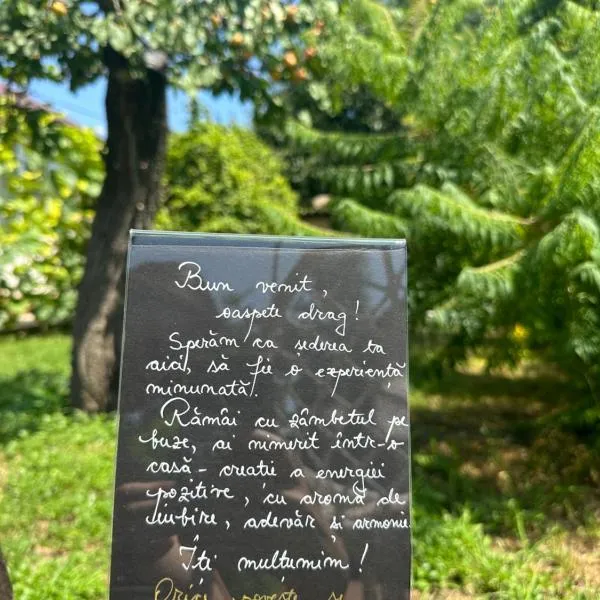 Bun venit,
oaspete drag!
Sperăm ca șederea ta
aici, să fie o experiență
minunată.
Rămâi cu zâmbetul pe
buze, ai nimerit într-o
casă - creație a energiei
pozitive, cu aromă de
iubire, adevăr și armonie.
Îți mulțumim!